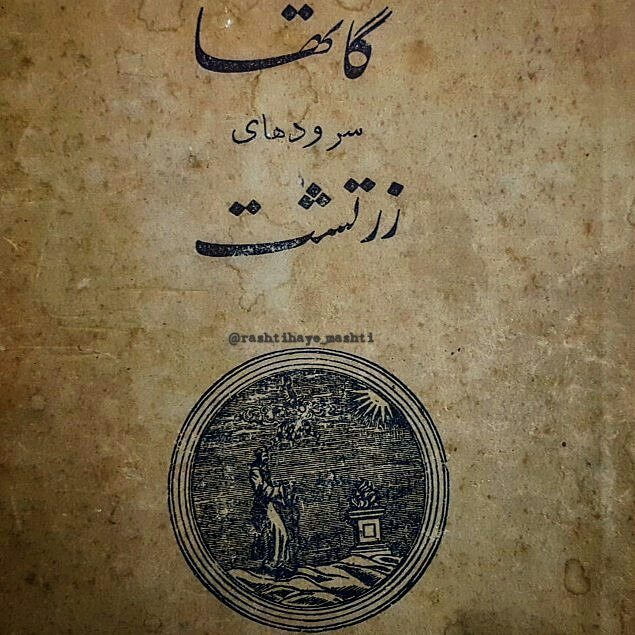 گاتها
سرودهای
زرتشت
@rashtihaye_mashti